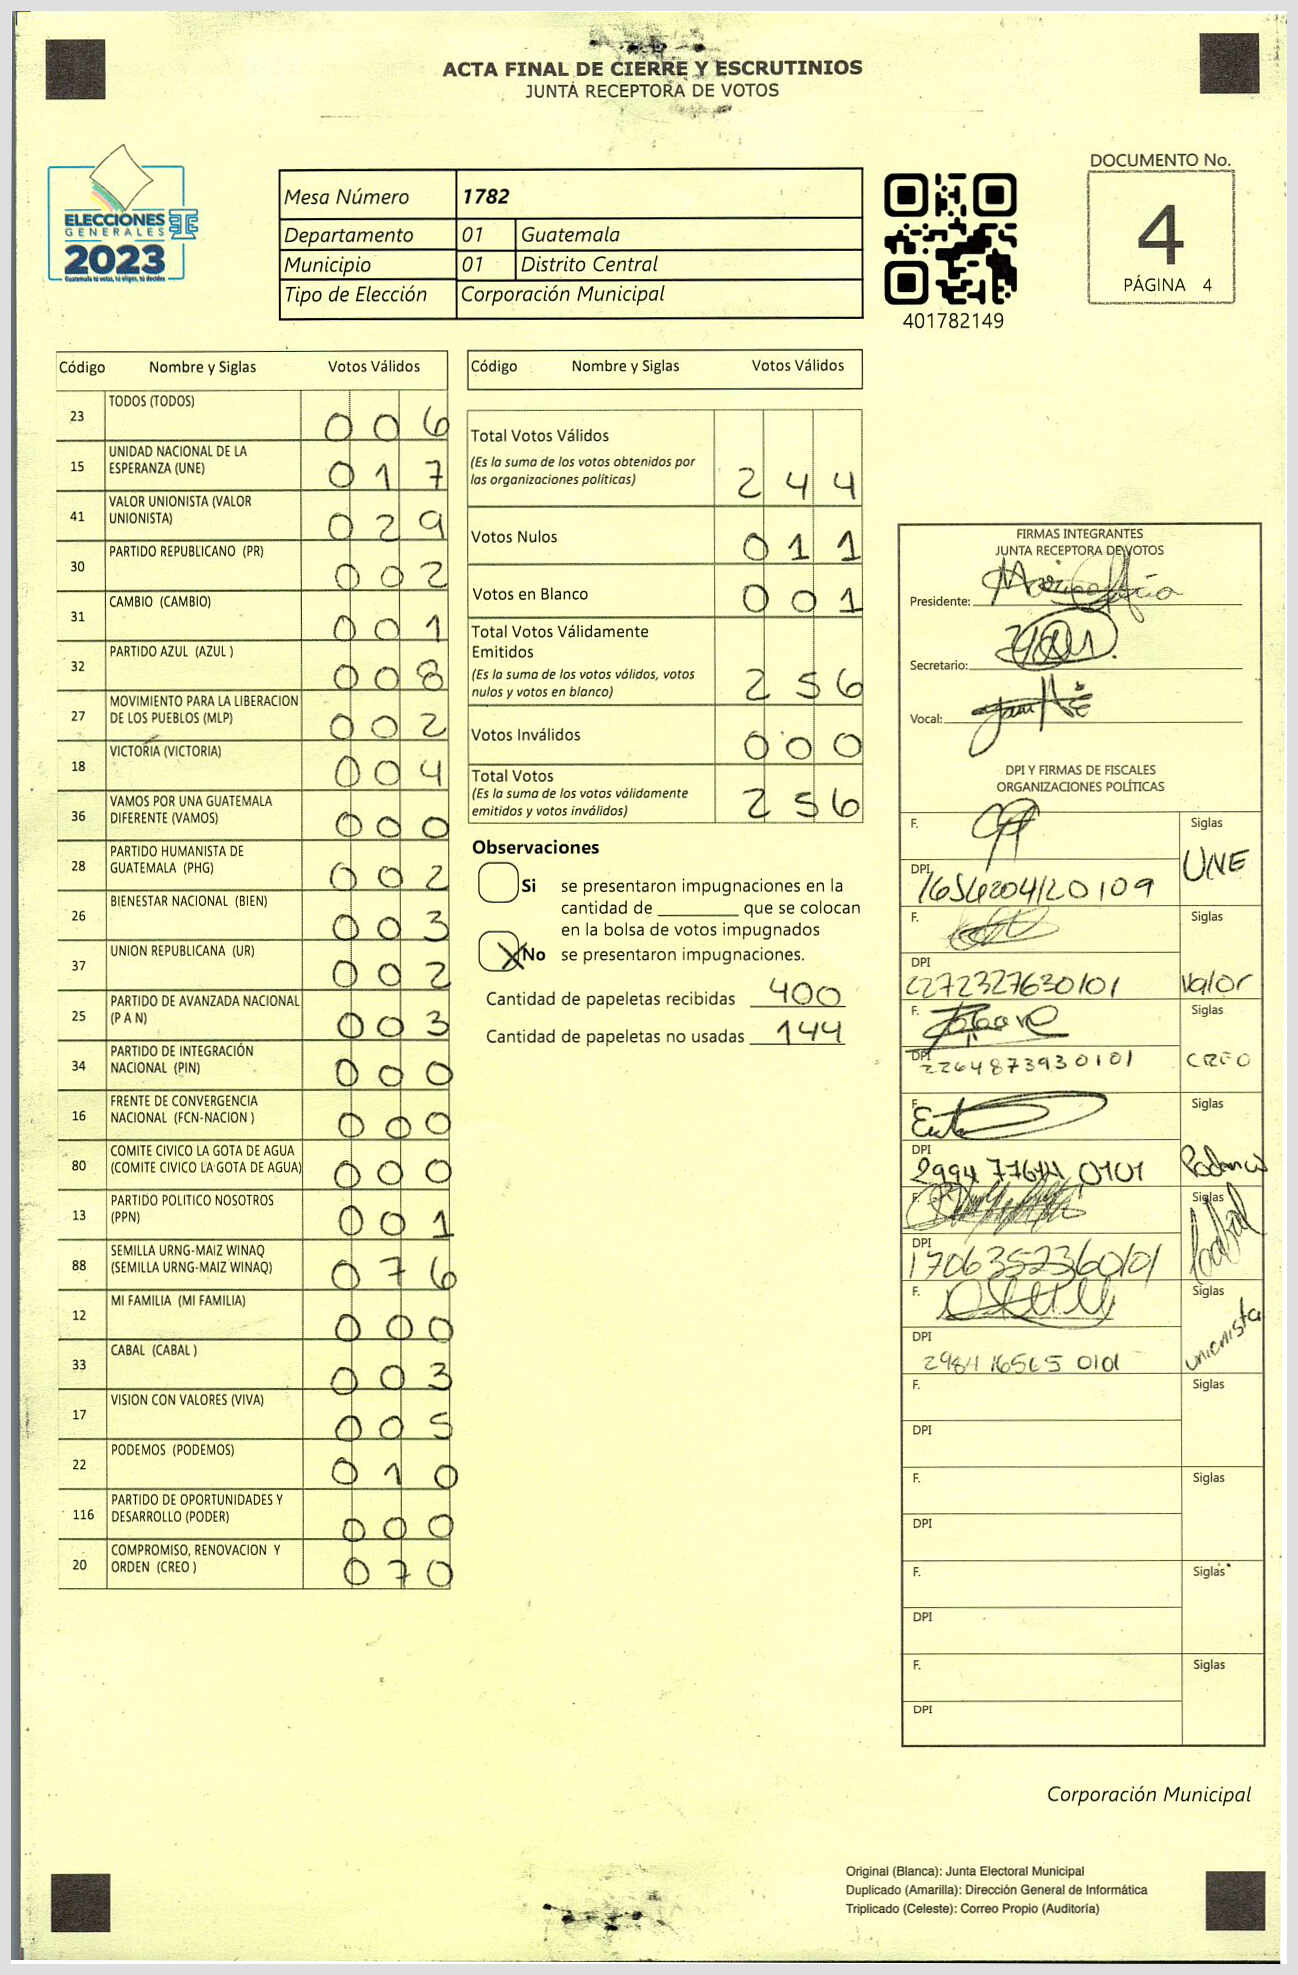 ACTA FINAL DE CIERRE Y ESCRUTINIOS
JUNTA RECEPTORA DE VOTOS
ELECCIONES
GENERALES
2023
Guatemala tú votas, tú eliges, tú decides
Mesa Número 1782
Departamento 01 Guatemala
Municipio 01 Distrito Central
Tipo de Elección Corporación Municipal
401782149
DOCUMENTO No.
4
PÁGINA 4
Código Nombre y Siglas Votos Válidos
23 TODOS (TODOS) 0 0 6
15 UNIDAD NACIONAL DE LA
ESPERANZA (UNE) 0 1 7
41 VALOR UNIONISTA (VALOR
UNIONISTA) 0 2 9
30 PARTIDO REPUBLICANO (PR) 0 0 2
31 CAMBIO (CAMBIO) 0 0 1
32 PARTIDO AZUL (AZUL ) 0 0 8
27 MOVIMIENTO PARA LA LIBERACION
DE LOS PUEBLOS (MLP) 0 0 2
18 VICTORIA (VICTORIA) 0 0 4
36 VAMOS POR UNA GUATEMALA
DIFERENTE (VAMOS) 0 0 0
28 PARTIDO HUMANISTA DE
GUATEMALA (PHG) 0 0 2
26 BIENESTAR NACIONAL (BIEN) 0 0 3
37 UNION REPUBLICANA (UR) 0 0 2
25 PARTIDO DE AVANZADA NACIONAL
(P A N) 0 0 3
34 PARTIDO DE INTEGRACIÓN
NACIONAL (PIN) 0 0 0
16 FRENTE DE CONVERGENCIA
NACIONAL (FCN-NACION ) 0 0 0
80 COMITE CIVICO LA GOTA DE AGUA
(COMITE CIVICO LA GOTA DE AGUA) 0 0 0
13 PARTIDO POLITICO NOSOTROS
(PPN) 0 0 1
88 SEMILLA URNG-MAIZ WINAQ
(SEMILLA URNG-MAIZ WINAQ) 0 7 6
12 MI FAMILIA (MI FAMILIA) 0 0 0
33 CABAL (CABAL ) 0 0 3
17 VISION CON VALORES (VIVA) 0 0 5
22 PODEMOS (PODEMOS) 0 1 0
116 PARTIDO DE OPORTUNIDADES Y
DESARROLLO (PODER) 0 0 0
20 COMPROMISO, RENOVACION Y
ORDEN (CREO ) 0 7 0
Código Nombre y Siglas Votos Válidos
Total Votos Válidos
(Es la suma de los votos obtenidos por
las organizaciones políticas) 2 4 4
Votos Nulos 0 1 1
Votos en Blanco 0 0 1
Total Votos Válidamente
Emitidos
(Es la suma de los votos válidos, votos
nulos y votos en blanco) 2 5 6
Votos Inválidos 0 0 0
Total Votos
(Es la suma de los votos válidamente
emitidos y votos inválidos) 2 5 6
Observaciones
Si se presentaron impugnaciones en la
cantidad de ________ que se colocan
en la bolsa de votos impugnados
X No se presentaron impugnaciones.
Cantidad de papeletas recibidas 400
Cantidad de papeletas no usadas 144
FIRMAS INTEGRANTES
JUNTA RECEPTORA DE VOTOS
Presidente:
Secretario:
Vocal:
DPI Y FIRMAS DE FISCALES
ORGANIZACIONES POLÍTICAS
F. Siglas
UNE
DPI
F. Siglas
DPI
2272327630101 Valor
F. Siglas
DPI
2264873930101 CREO
F. Siglas
DPI
Podemos
F. Siglas
DPI
1706352360101 Cabal
F. Siglas
DPI
2984 16565 0101 unionista
F. Siglas
DPI
F. Siglas
DPI
F. Siglas
DPI
F. Siglas
DPI
Corporación Municipal
Original (Blanca): Junta Electoral Municipal
Duplicado (Amarilla): Dirección General de Informática
Triplicado (Celeste): Correo Propio (Auditoría)